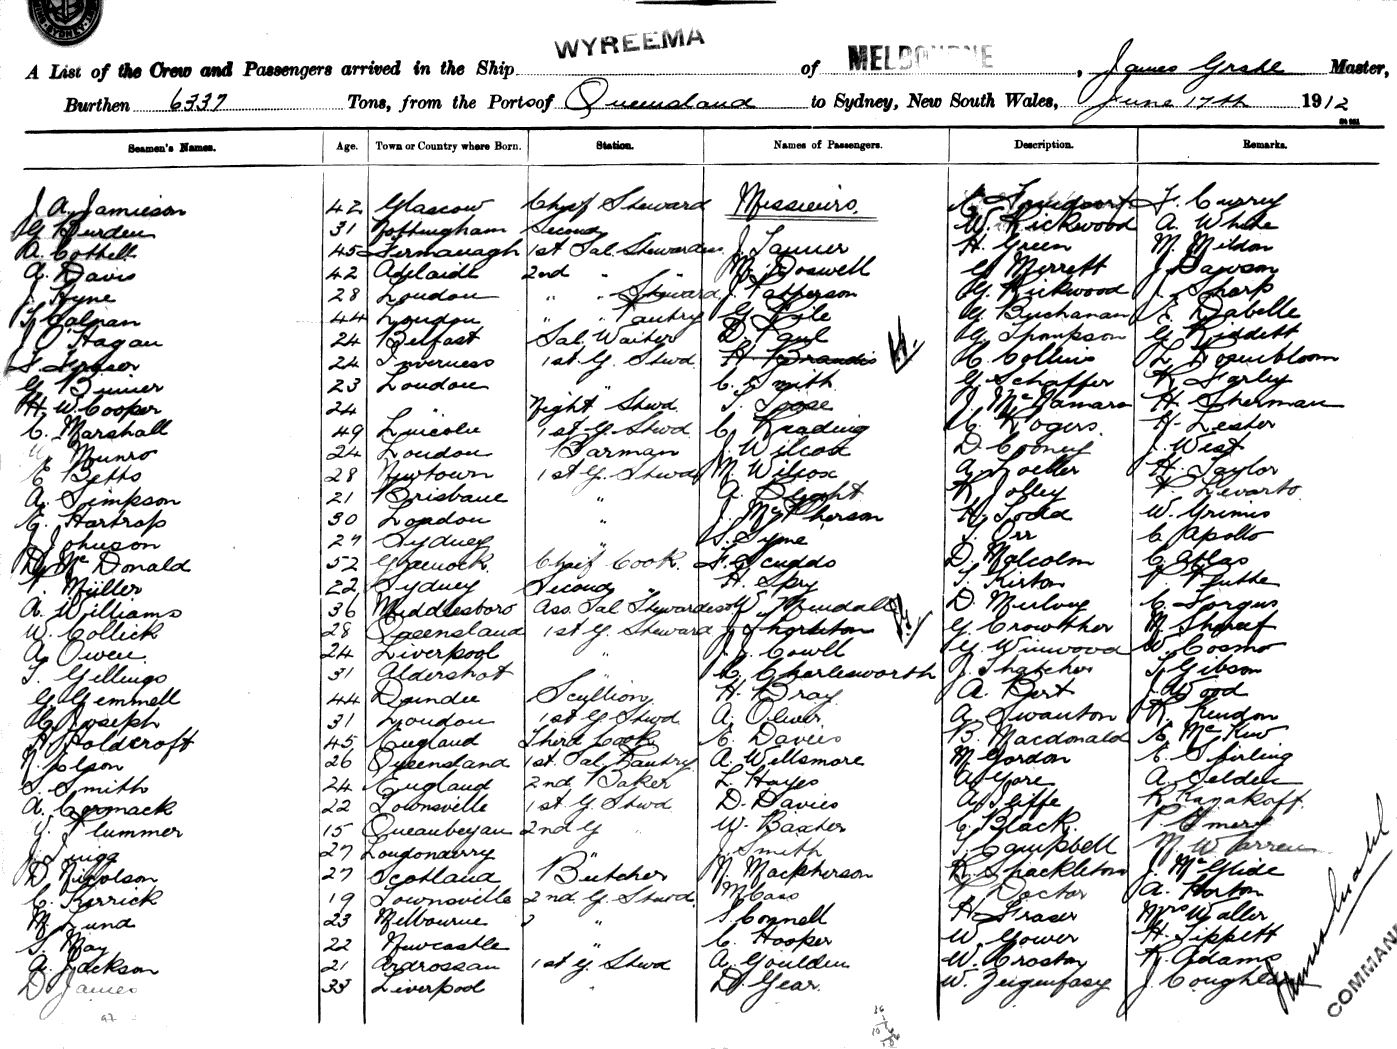 WYREEMA MELBOURNE
A List of the Crew and Passengers arrived in the Ship of , James Grahl Master,
Burthen 6337 Tons, from the Port of Queensland to Sydney, New South Wales, June 17th 1912
Seamen's Names. Age. Town or Country where Born. Station. Names of Passengers. Description. Remarks.
J. A. Jamieson 42 Glascow Chief Steward Messieurs. Curry
G. Burden 31 Nottingham Second W. Kirkwood A. White
A. Cothell 45 Fermanagh 1st Sal. Stewardess J. Tanner H. Green M. Mildon
A. Davis 42 Adelaide 2nd " " Doswell G. Merrett J. Dawson
J. Hyne 28 London " " Steward J. Patterson G. Kirkwood J. Sharp
Galpan 44 London " " Pantry G. Pile G. Buchanan
J. Hagan 24 Belfast Sal. Waiter D. Paul G. Thompson G. Riddett
Fraser 24 Inverness 1st G. Stwd H. Brandis H. Collins L. Rosenbloom
G. Bluner 23 London " C. Smith G. Schaffer K. Farley
H. W. Cooper 24 " Night Stwd. T. Toose J. McNamara H. Sherman
C. Marshall 49 Lincoln 1st G. Stwd C. Reading C. Rogers. H. Lester
Munro 24 London Barman J. Wilcox D. Cooney J. West
E. Betts 28 Newtown 1st G. Stwd M. Wilcox A. Zoeller H. Taylor
A. Simpson 21 Brisbane " A. Light K. Jolley Levarto
E. Hartrop 30 London " J. McPherson H. Todd W. Grimis
J. Johnson 27 Sydney " S. Syne T. Orr C. Apollo
D. McDonald 52 Greenock. Chief Cook. Scudds D. Malcolm C. Atlas
Müller 22 Sydney Second " H. Spry T. Kirton
A. Williams 36 Middlesboro Ass. Sal Stewardess W. Mundall D. Mulvey C. Forgus
W. Collick 28 Queensland 1st G. Steward J. Thornton G. Crowther M. Shareef
A. Owen. 24 Liverpool " J. J. Cowll G. Winwood W. Cosmo
T. Gillings 31 Aldershot " C. Charlesworth J. Thatcher T. Gibson
G. Gemmell 44 Dundee Scullion. H. Bray A. Bert J. Wood
Joseph 31 London 1st G Stwd. A. Oliver. A. Swanton K. Rendon
Holdcroft 45 England Third Cook E. Davies B. Macdonald
N. Olson 26 Queensland 1st. Sal. Pantry A. Willsmore M. Gordon E. Stirling
S. Smith 24 England 2nd Baker L. Hayes A. Gore A. Selden
A. Cormack 22 Townsville 1st G Stwd D. Davies A. Iliffe K. Kanakoff.
Plummer 15 Queanbeyan 2nd G " W. Baxter C. Black. P. Emery
J. Quigg 27 Londonderry " J. Smith T. Campbell M. Warren
D. Nicolson 27 Scotland Butcher N. Macpherson K. Shackleton J. McGlide
C. Kerrick 19 Townsville 2nd G Stwd. M. Cass Doctor A. Horton
M. Lund 23 Melbourne " " Connell H. Fraser Mrs Waller
S. May 22 Newcastle " C. Hooper W. Gower H. Tippett
A. Jackson 21 Ardrossan 1st G Stwd A. Goulden W. Croston K. Adams
D. James 33 Liverpool " D. Gear. W. J. Coughlan
James Grahl
COMMAN